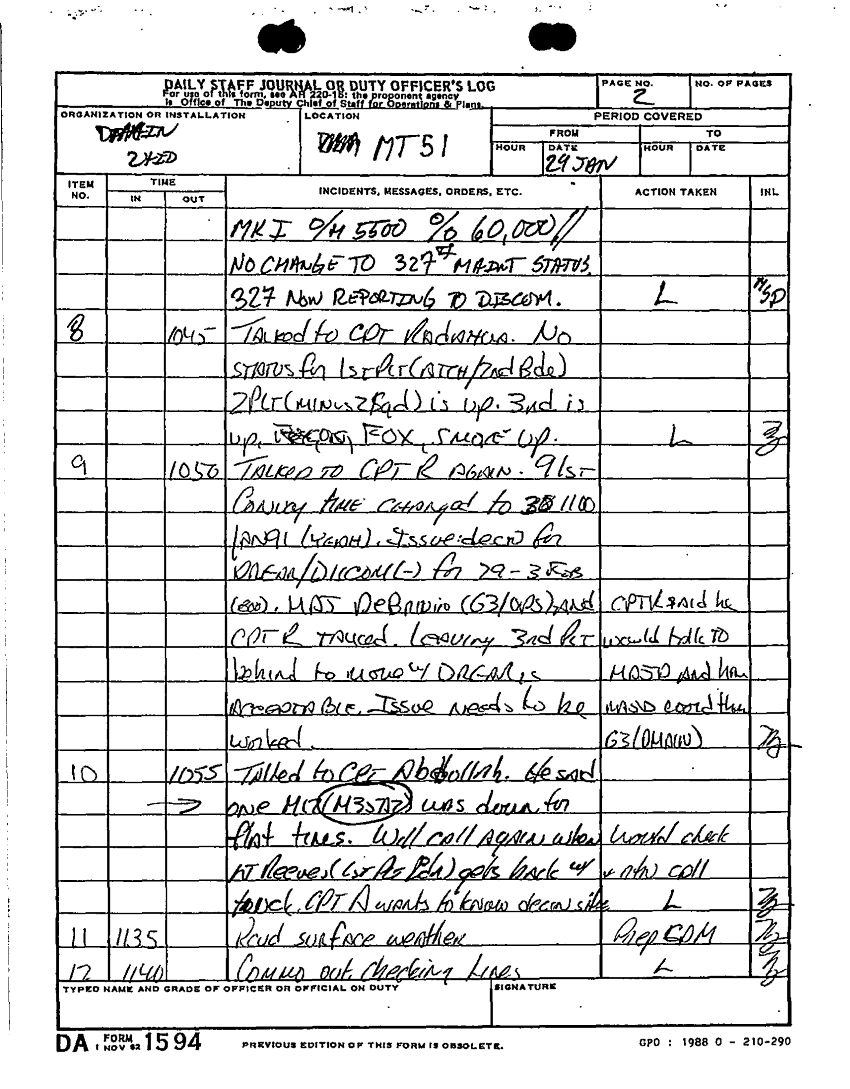 DAILY STAFF JOURNAL OR DUTY OFFICER'S LOG
For use of this form, see AR 220-15; the proponent agency
is Office of The Deputy Chief of Staff for Operations & Plans.
PAGE NO.
2
NO. OF PAGES
ORGANIZATION OR INSTALLATION
DMAIN
LOCATION
MT 51
PERIOD COVERED
FROM
TO
HOUR
DATE
29 JAN
HOUR
DATE
ITEM NO.
TIME
IN
OUT
INCIDENTS, MESSAGES, ORDERS, ETC.
ACTION TAKEN
INL
MKI O/H 5500 O/O 60,000//
NO CHANGE TO 327th MAINT STATUS.
327 NOW REPORTING TO DISCOM. L
8 1045 TALKED TO CPT. No
STATUS for 1st PLT (ATCH/2nd Bde)
2PLT (MINUS 2 Sqd) is up. 3rd is
up, FOX, SMOKE UP. L
9 1050 TALKED TO CPT R AGAIN. 91st
Convoy time changed to 1100
JAN 91 (YEAH). Issue: decon for
DREAR/DISCOM(-) for 29-3 FEB
MAJ (G3/OPS) AND CPT R said he
CPT R TALKED. LEAVING 3rd PLT would talk TO
behind to move w/ DREAR is AND have
ACCEPTABLE. Issue needs to be coord
worked. G3 (DMAIN)
10 1055 Talked to CPT Abdullah. He said
→ one was down for
flat tires. Will call again when would check
LT Reeves gets back w/ call
track. CPT A wants to know decon site L
11 1135 Rcvd surface weather Prep
12 1140 Commo out checking lines L
TYPED NAME AND GRADE OF OFFICER OR OFFICIAL ON DUTY
SIGNATURE
DA FORM 1 NOV 62 1594
PREVIOUS EDITION OF THIS FORM IS OBSOLETE.
GPO : 1988 O - 210-290